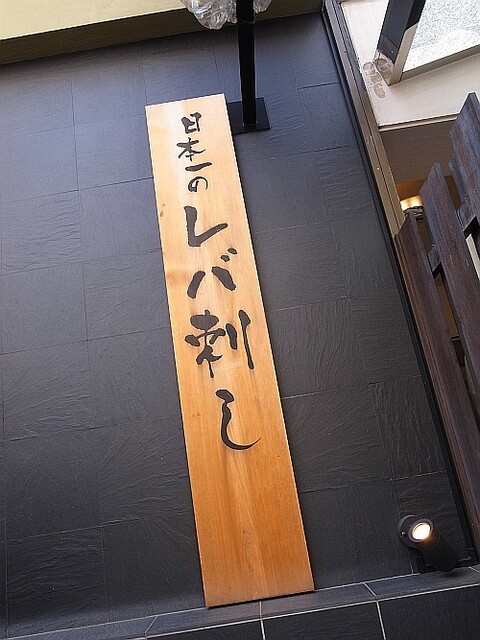 日本一のレバ刺し